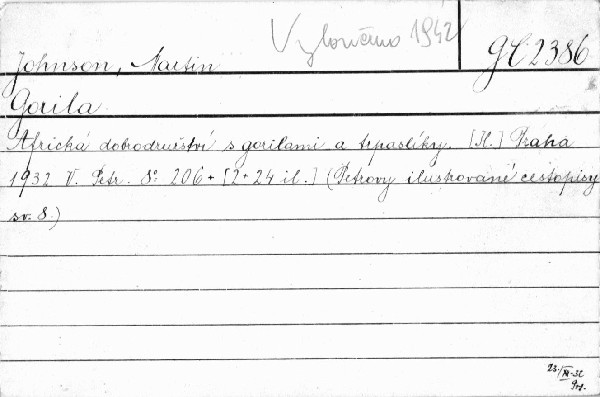 Vyloučeno 1942
GE 2386
Johnson, Martin
Gorila.
Africká dobrodružství s gorilami a trpaslíky. [Il.] Praha
1932 V. Petr. 8° 206 + [2+24 il.] (Petrovy ilustrované cestopisy
sv. 8.)
23/XI-32